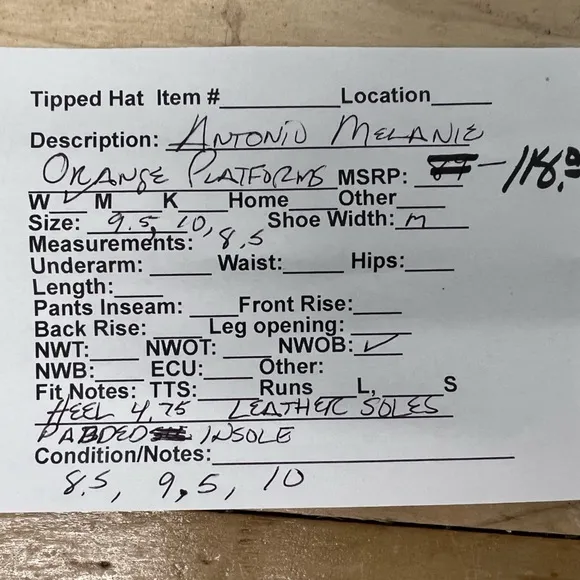 Tipped Hat Item #_______ Location_____
Description: ANTONIO MELANIE
ORANGE PLATFORMS MSRP: — 118.0
W ✓ M__ K____Home____ Other____
Size: 9.5, 10, 8.5 Shoe Width: M
Measurements:
Underarm: _____ Waist:_____ Hips:____
Length:____
Pants Inseam: ____Front Rise:____
Back Rise: ____Leg opening: _____
NWT:____ NWOT: ____ NWOB: ✓
NWB:____ ECU:____ Other:
Fit Notes: TTS:____ Runs ____L,_____S
HEEL 4.75 LEATHER SOLES
PADDED INSOLE
Condition/Notes:____________________
8.5, 9.5, 10